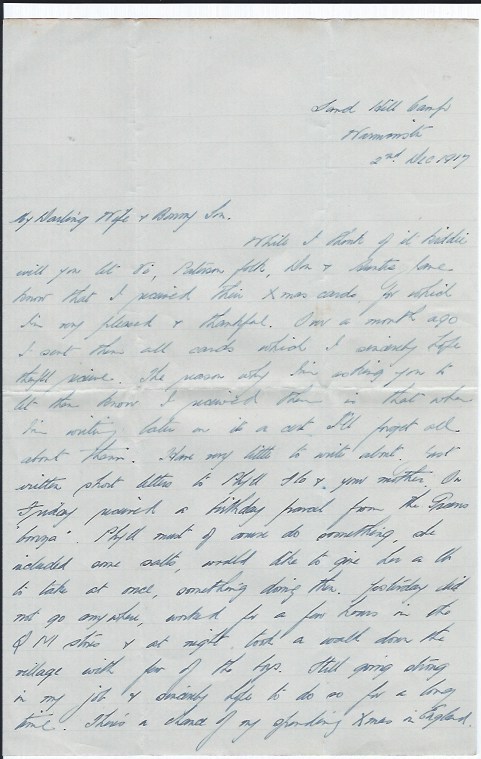 Sand Hill Camp
Warminster
2nd Dec 1917
My Darling Wife & Bonny Son.
While I think of it kiddie
will you let Vi, Paterson folk, Don & Auntie Jane
know that I received their Xmas cards for which
I'm very pleased & thankful. Over a month ago
I sent them all cards which I sincerely hope
they'll receive. The reason why I'm asking you to
let them know I received them is that when
I'm writing later on its a cert I'll forget all
about them. Have very little to write about. Just
written short letters to Phyll Flo & your mother. On
Friday received a birthday parcel from the Grans
bonza. Phyll must of course do something, she
included some salts, would like to give her a lb
to take at once, something doing then. Yesterday did
not go anywhere, worked for a few hours in the
Q M stores & at night took a walk down the
village with four of the boys. Still going strong
in my job & sincerely hope to do so for a long
time. There's a chance of my spending Xmas in England.